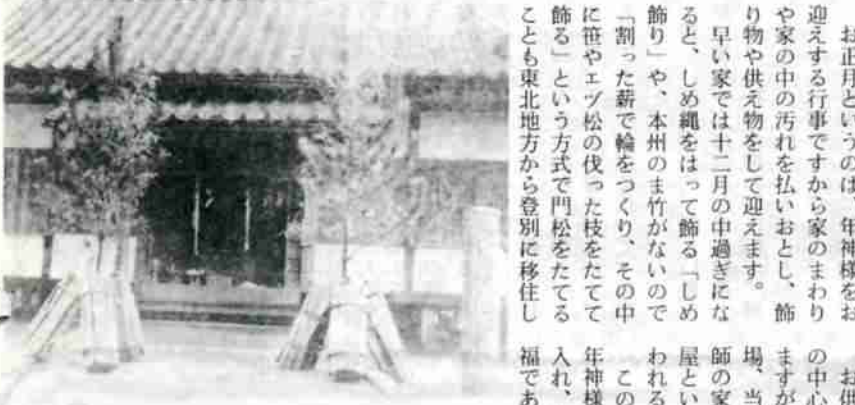 お正月というのは、年神様をお
迎えする行事ですから家のまわり
や家の中の汚れを払いおとし、飾
り物や供え物をして迎えます。
早い家では十二月の中過ぎにな
ると、しめ縄をはって飾る「しめ
飾り」や、本州のま竹がないので
「割った薪で輪をつくり、その中
に笹やエゾ松の伐った枝をたてて
飾る」という方式で門松をたてる
ことも東北地方から登別に移住し
お供
の中心
ますが
場、当
師の家
屋とい
われる
この
年神様
入れ、
福であ